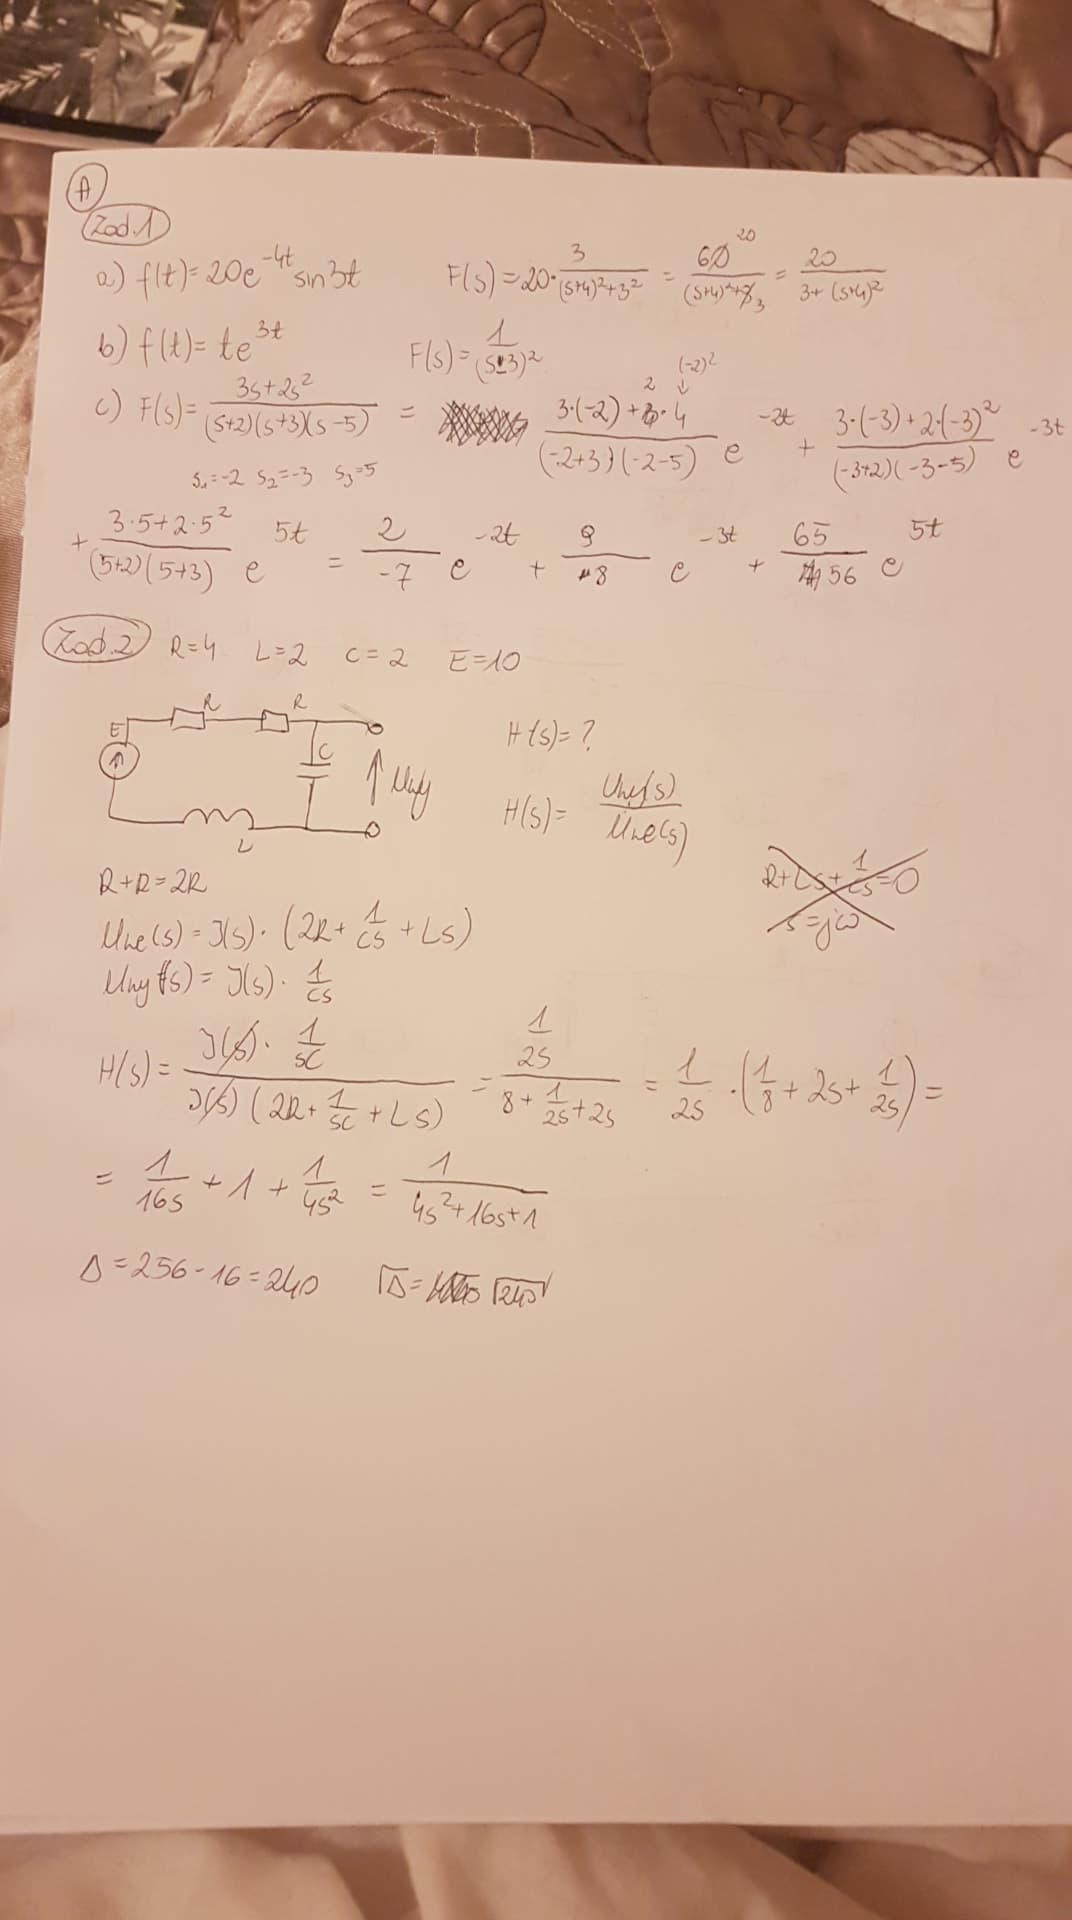 A
Zad.1
a) f(t)=20e^-4t sin3t F(s)=20·3/((s+4)²+3²) = 60 20/((s+4)²+9 3) = 20/(3+(s+4)²)
b) f(t)=te^3t F(s)=1/(s-3)²
c) F(s)=(3s+2s²)/((s+2)(s+3)(s-5)) = (3·(-2)+2·4)/((-2+3)(-2-5)) e^-2t + (3·(-3)+2·(-3)²)/((-3+2)(-3-5)) e^-3t
(-2)² ↓
s₁=-2 s₂=-3 s₃=5
+ (3·5+2·5²)/((5+2)(5+3)) e^5t = 2/-7 e^-2t + 9/8 e^-3t + 65/56 e^5t
Zad.2 R=4 L=2 C=2 E=10
R R
E C Uwy
L
H(s)=?
H(s)= Uwy(s)/Uwe(s)
R+Ls+1/Cs=0
s=jω
R+R=2R
Uwe(s)=I(s)·(2R+1/Cs+Ls)
Uwy(s)=I(s)·1/Cs
H(s)= (I(s)·1/sC)/(I(s)(2R+1/sC+Ls)) = (1/2s)/(8+1/2s+2s) = 1/2s·(1/8+2s+1/2s)=
= 1/16s+1+1/4s² = 1/(4s²+16s+1)
Δ=256-16=240 √Δ= √240